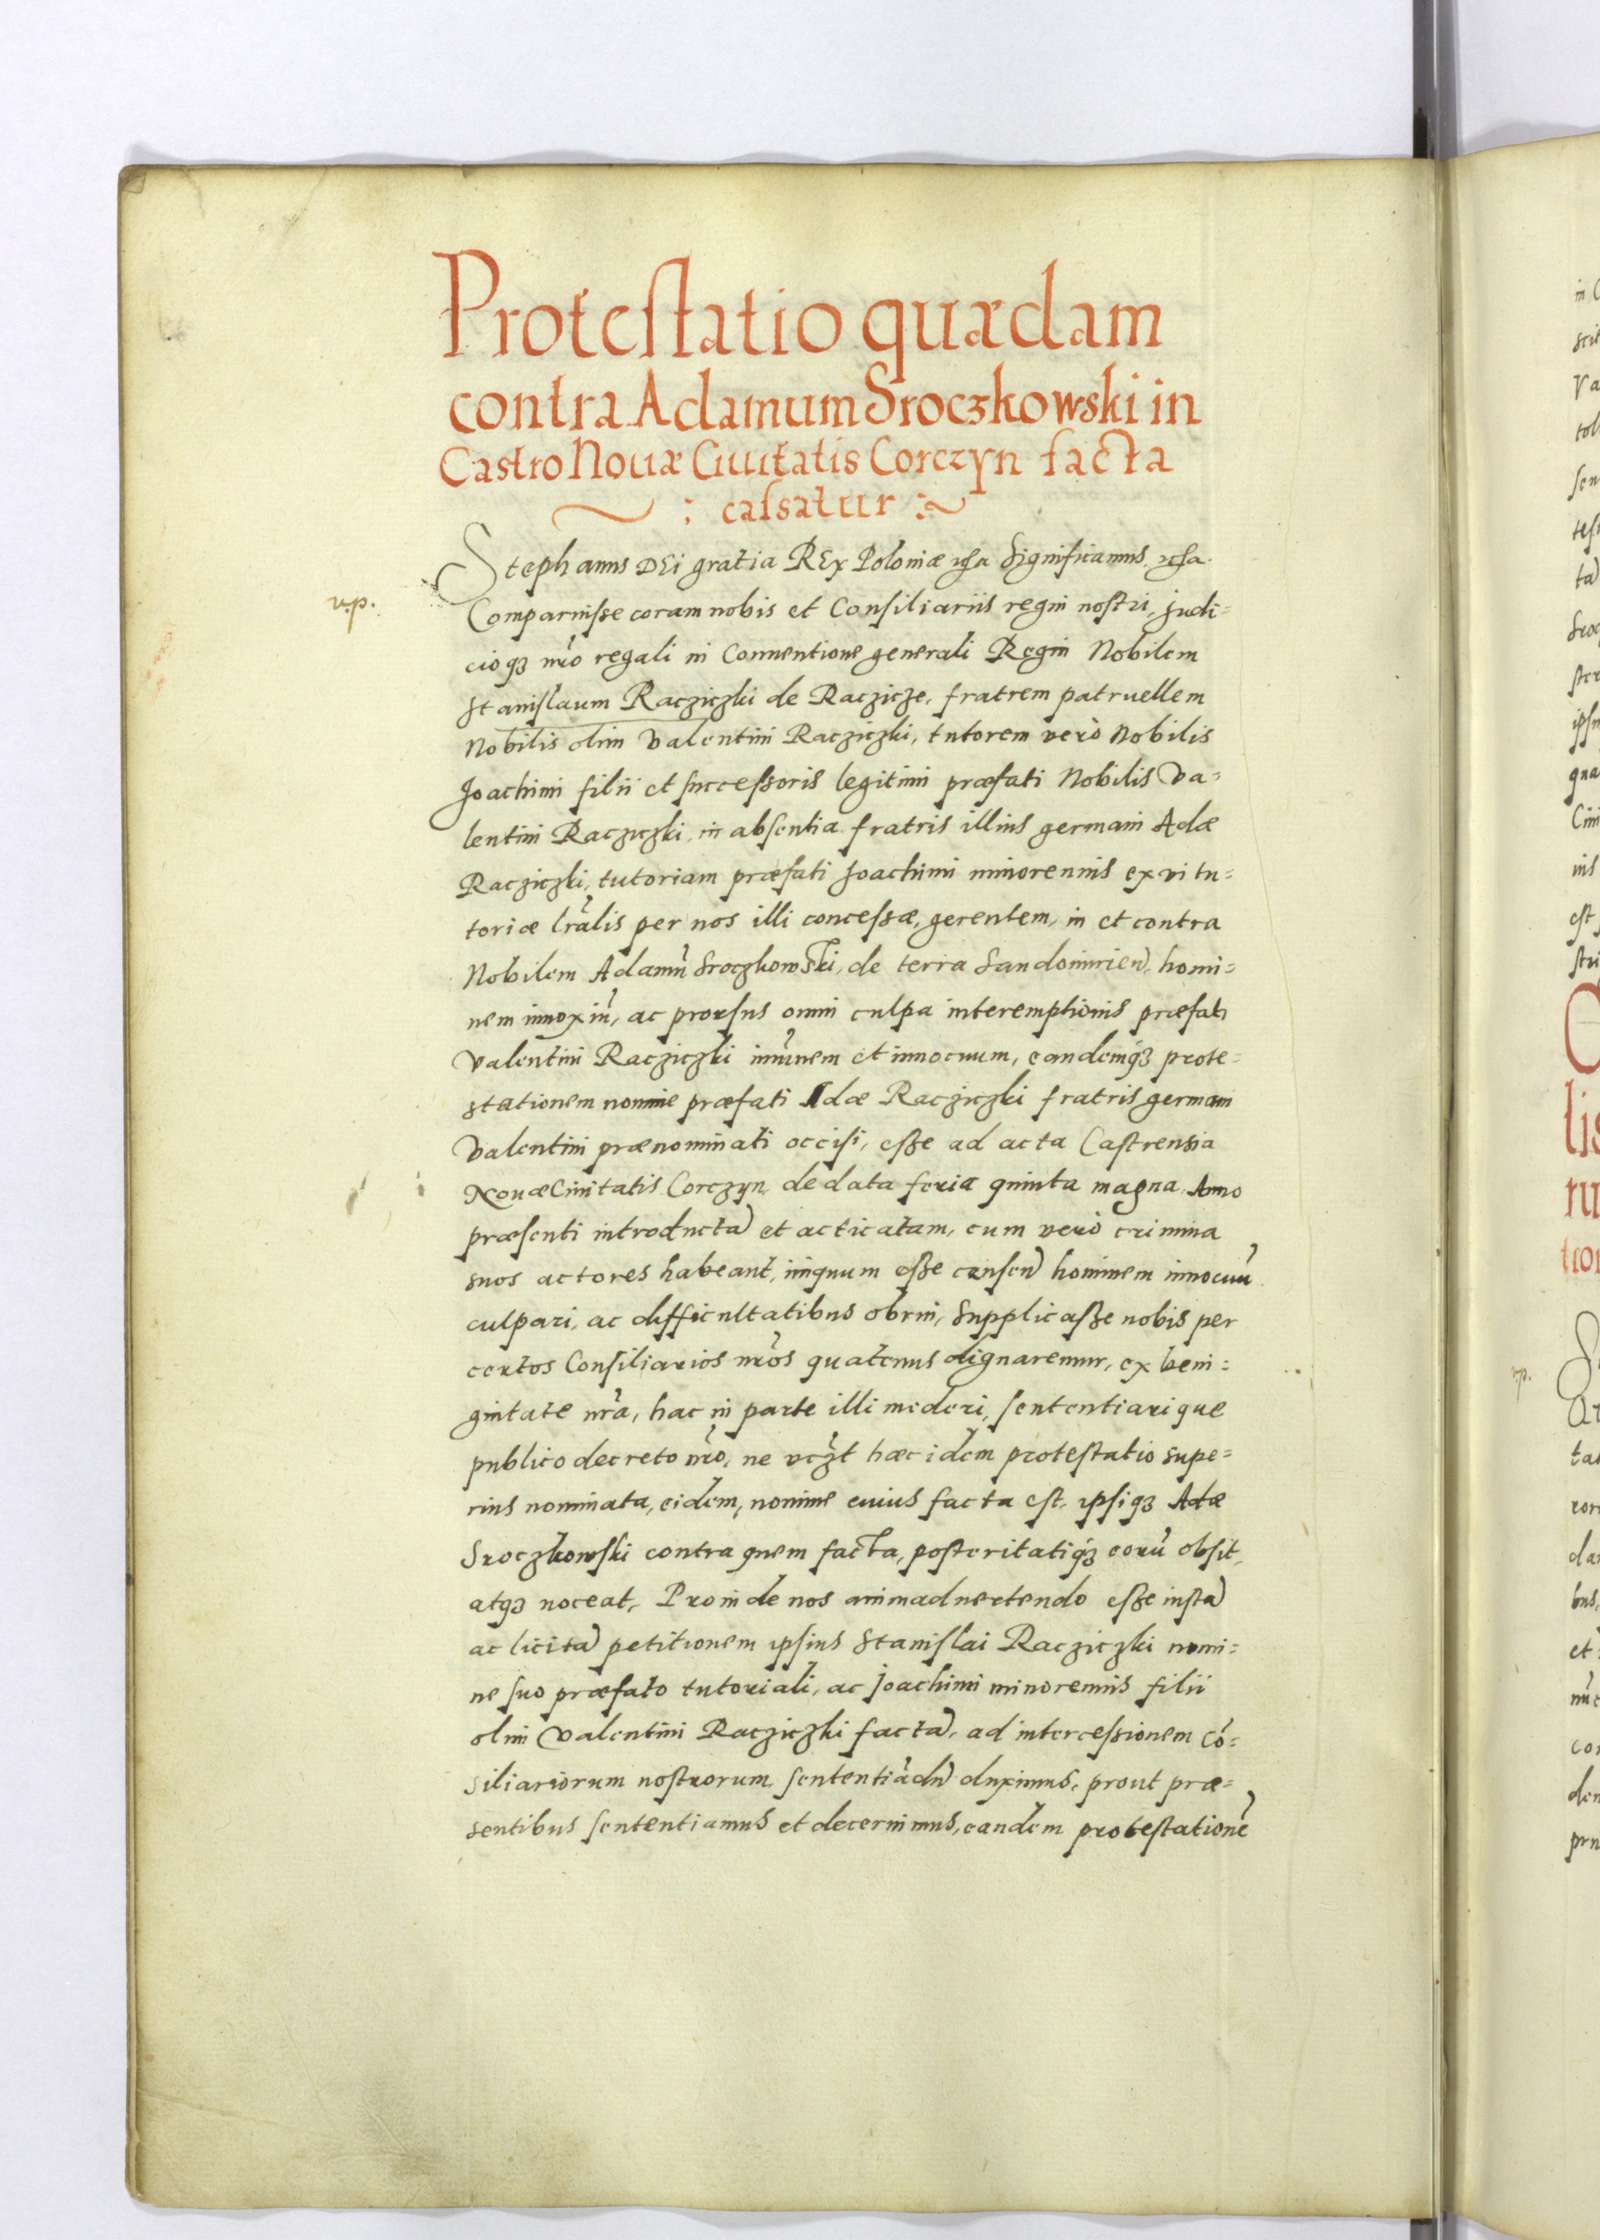 Protestatio quædam
contra Adamum Sroczkowski in
Castro Nouæ Ciuitatis Corczyn facta
: cassatur :
Stephanus DEi gratia REx Poloniæ Significamus
v.p.
Comparuisse coram nobis et Consiliariis regni nostri, judi=
cioq3 nr̃o regali in Conuentione generali Regni Nobilem
Stanislaum Racziczki de Raczicze, fratrem patruellem
Nobilis olim Valentini Racziczki, tutorem verò Nobilis
Joachimi filii et successoris legitimi præfati Nobilis Va=
lentini Racziczki, in absentia fratris illius germani Adæ
Racziczki, tutoriam præfati Joachimi minorennis ex vi tu=
toriæ lr̃alis per nos illi concessæ, gerentem, in et contra
Nobilem Adamũ Sroczkowski, de terra Sandomirien̄, homi=
nem innoxiũ, ac prorsus omni culpa interemptionis præfati
Valentini Racziczki im̃unem et innocuum, eandemq́3 prote=
stationem nomine præfati Adæ Racziczki fratris germani
Valentini prænominati occisi, esse ad acta Castrensia
Nouæ Ciuitatis Corczyn, de data feria quinta magna Anno
præsenti introductã et acticatam, cum verò crimina
suos actores habeant, iniquum esse censen̄ hominem innocuũ
culpari, ac difficultatibus obrui, Supplicasse nobis per
certos Consiliarios nr̃os quatenus dignaremur, ex beni=
gnitate nr̃a, hac in parte illi mederi, sententiarique
publico decreto nr̃o, ne hæc idem protestatio supe=
rius nominata, eidem, nomine cuius facta est, ipsiq3 Adæ
Sroczkowski contra quem facta, posteritatiq́3 eorũ obsit,
atq3 noceat, Proinde nos animaduertendo esse iustã
ac licitã petitionem ipsius Stanislai Racziczki nomi=
ne suo præfato tutoriali, ac Joachimi minorennis filii
olim Valentini Racziczki factã, ad intercessionem Cõ=
siliariorum nostrorum sententiãdũ duximus, prout præ=
sentibus sententiamus et decernimus, eandem protestationẽ